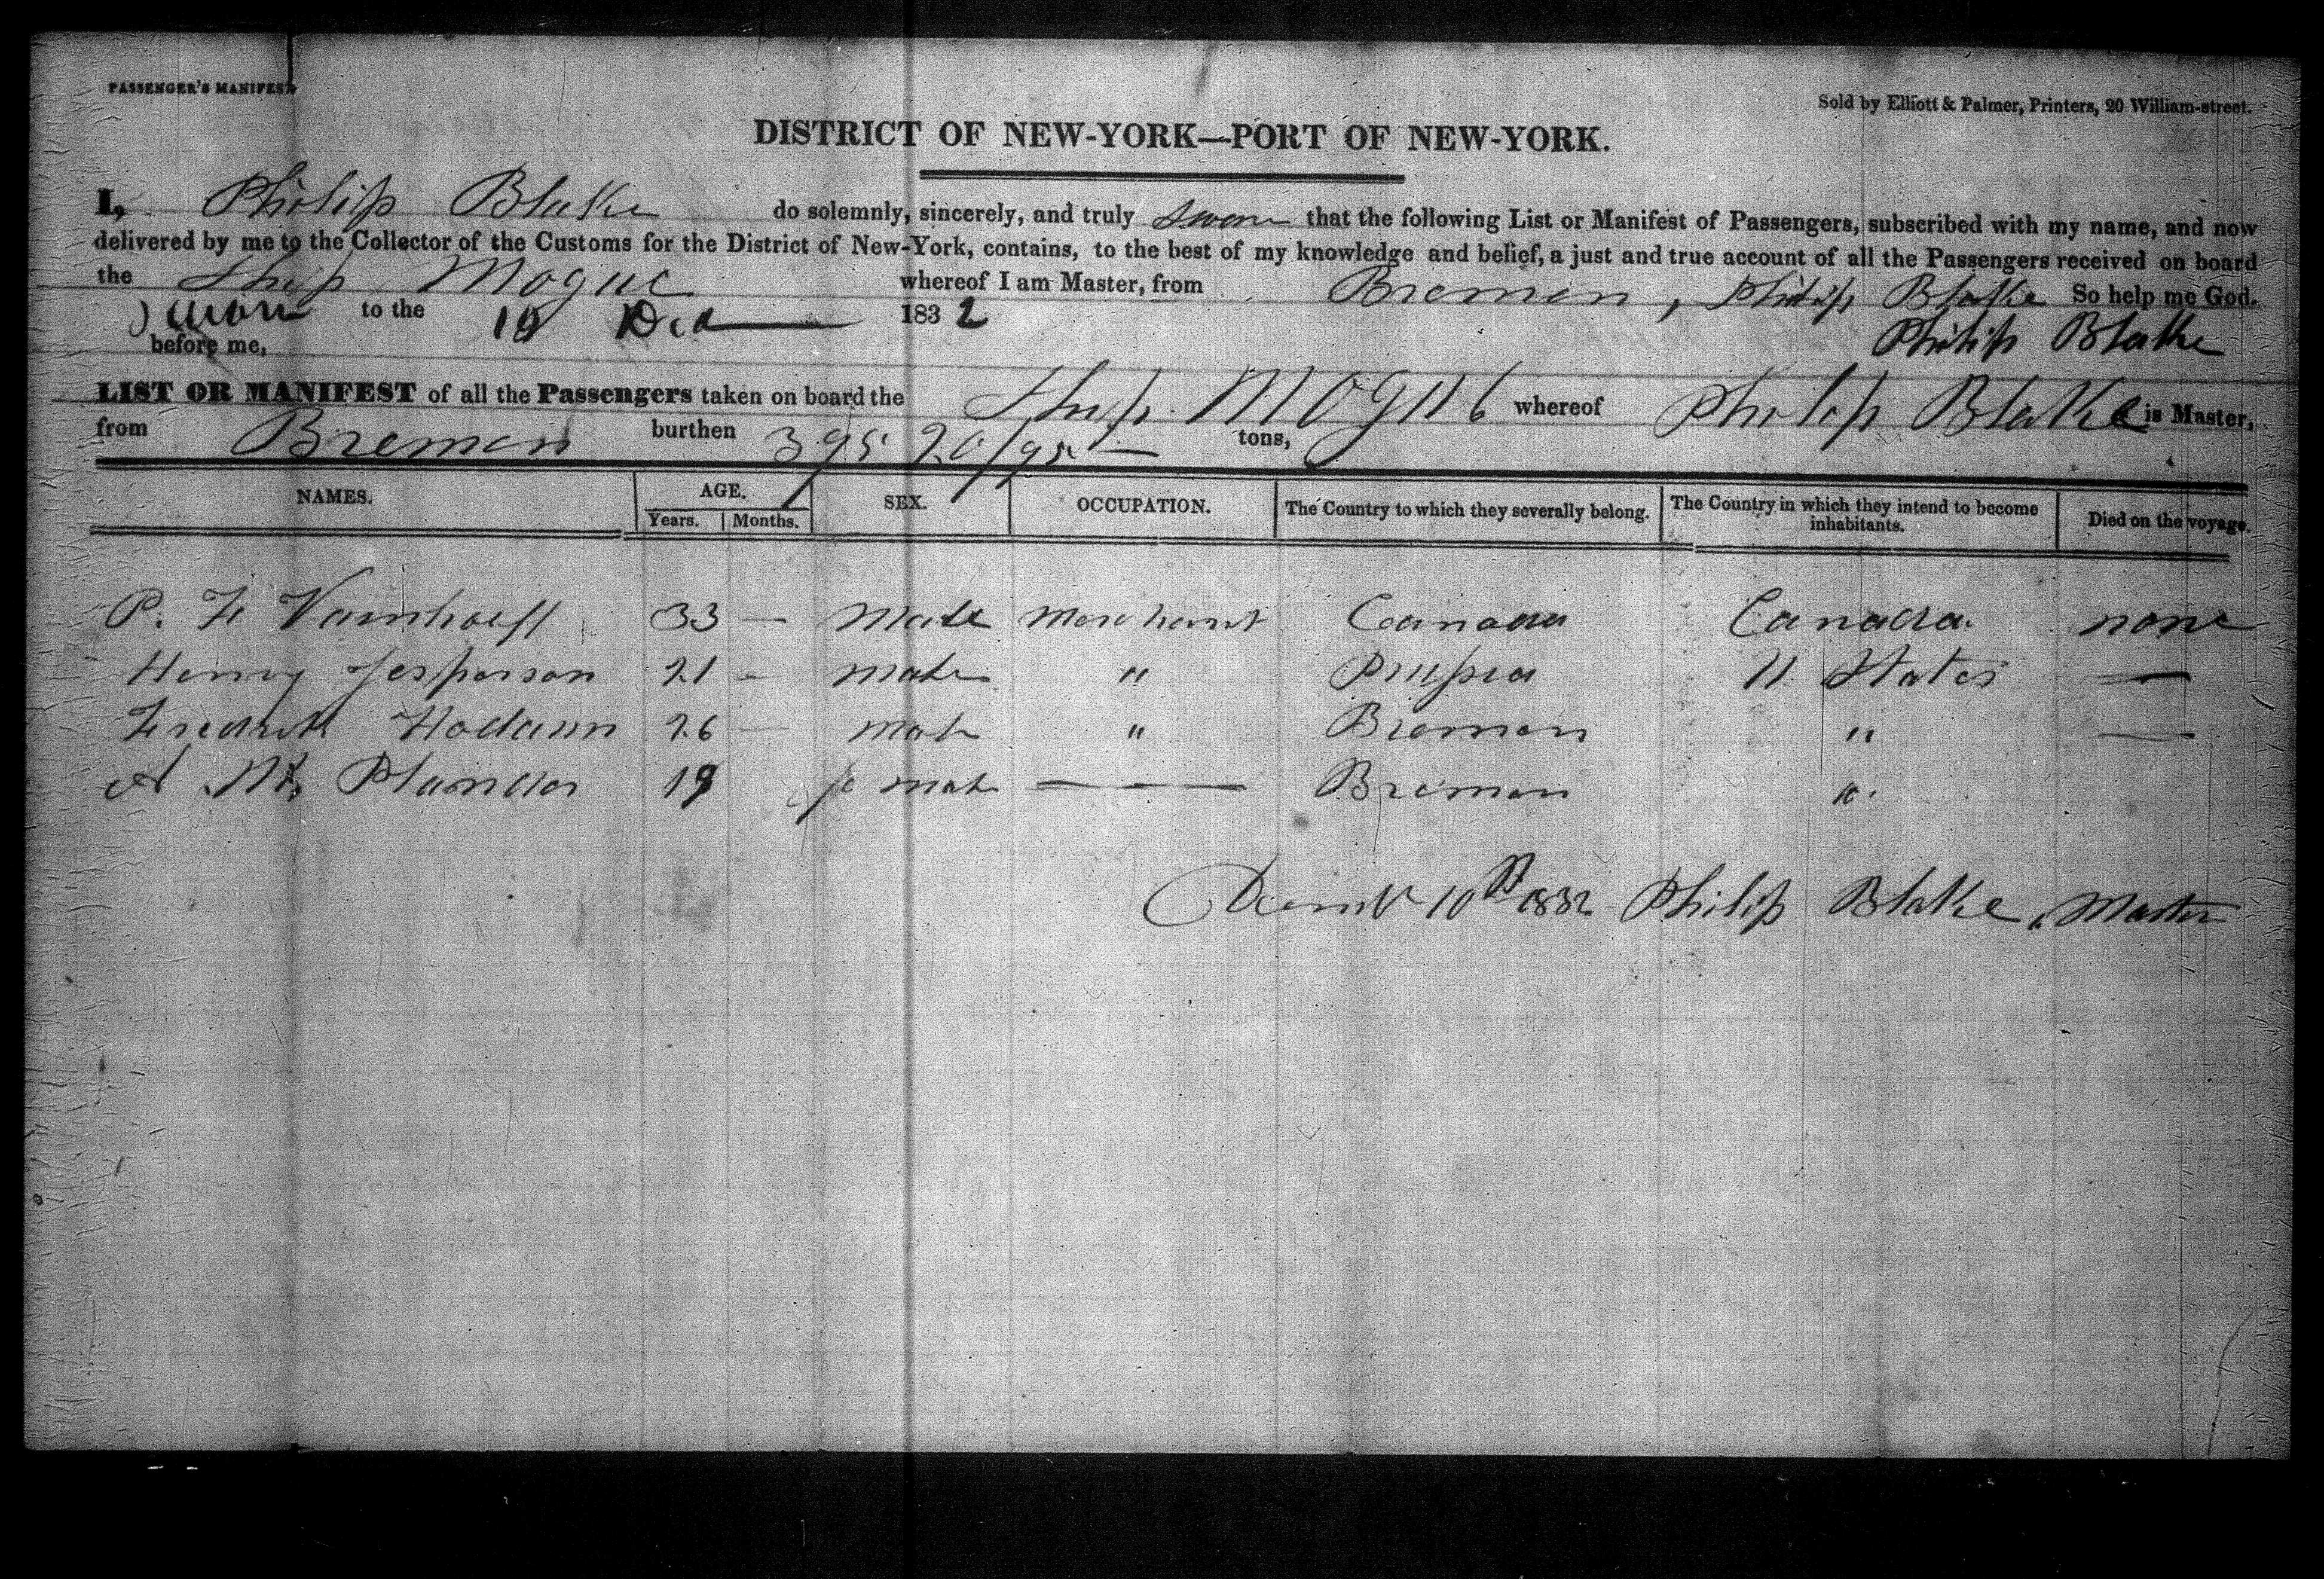 PASSENGER'S MANIFEST
Sold by Elliott & Palmer, Printers, 20 William-street.
DISTRICT OF NEW-YORK—PORT OF NEW-YORK.
I, Philip Blake do solemnly, sincerely, and truly swear that the following List or Manifest of Passengers, subscribed with my name, and now
delivered by me to the Collector of the Customs for the District of New-York, contains, to the best of my knowledge and belief, a just and true account of all the Passengers received on board
the Ship Mogul whereof I am Master, from Bremen, Philip Blake So help me God.
Sworn to the 10 Dec 1832 Philip Blake
before me,
LIST OR MANIFEST of all the Passengers taken on board the Ship MOGUL whereof Philip Blake is Master,
from Bremen burthen 395 20/95 tons,
NAMES. AGE. Years. Months. SEX. OCCUPATION. The Country to which they severally belong. The Country in which they intend to become inhabitants. Died on the voyage.
P. F. 33 — Male Merchant Canada Canada. none
Henry Jesperson 21 - male " Prussia U. States —
Fredrick 26 — male " Bremen " —
A 19 fe male — Bremen "
10th 1832 Philip Blake, Master